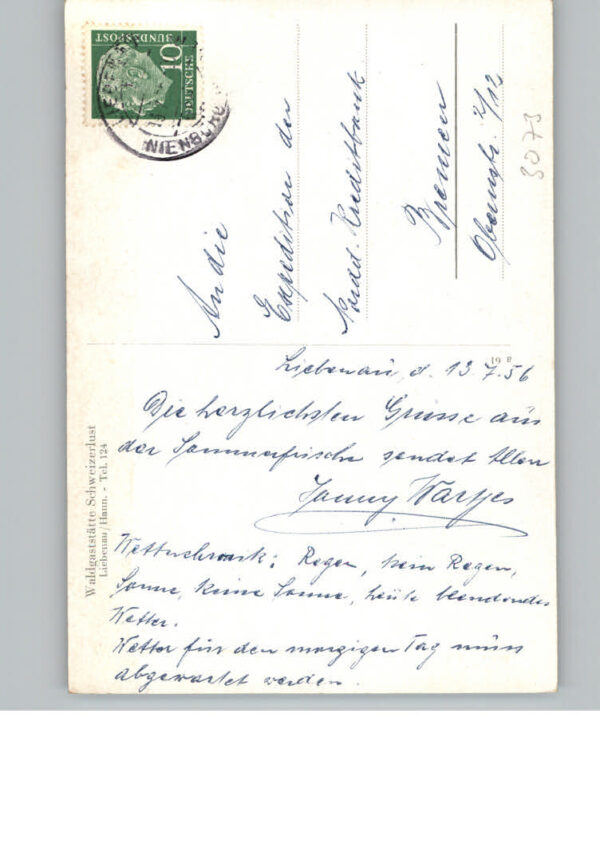 DEUTSCHE
BUNDESPOST
10
NIENBURG
An die
Expedition der
Nordd. Kreditbank
Bremen
Obernstr. 2/12
3073
19 8
Liebenau, d. 13.7.56
Die herzlichsten Grüsse aus
der Sommerfrische sendet Allen
Wartjes
Regen, kein Regen,
Sonne, keine Sonne, heute blendendes
Wetter.
Wetter für den morgigen Tag muss
abgewartet werden.
Waldgaststätte Schweizerlust
Liebenau/Hann. - Tel. 124